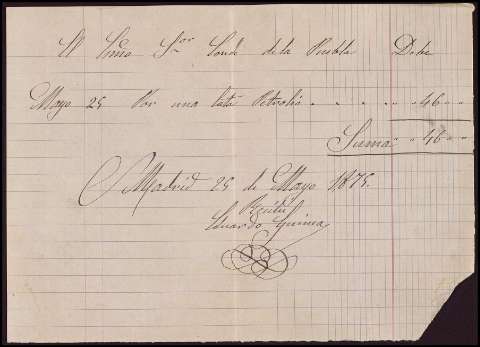 El Exmo Sor Conde de la Puebla Debe
Mayo 25 Por una lata Petrolio . . . . . " " 46 " "
Suma " " 46 " "
Madrid 25 de Mayo 1875.
Recibí
Eduardo